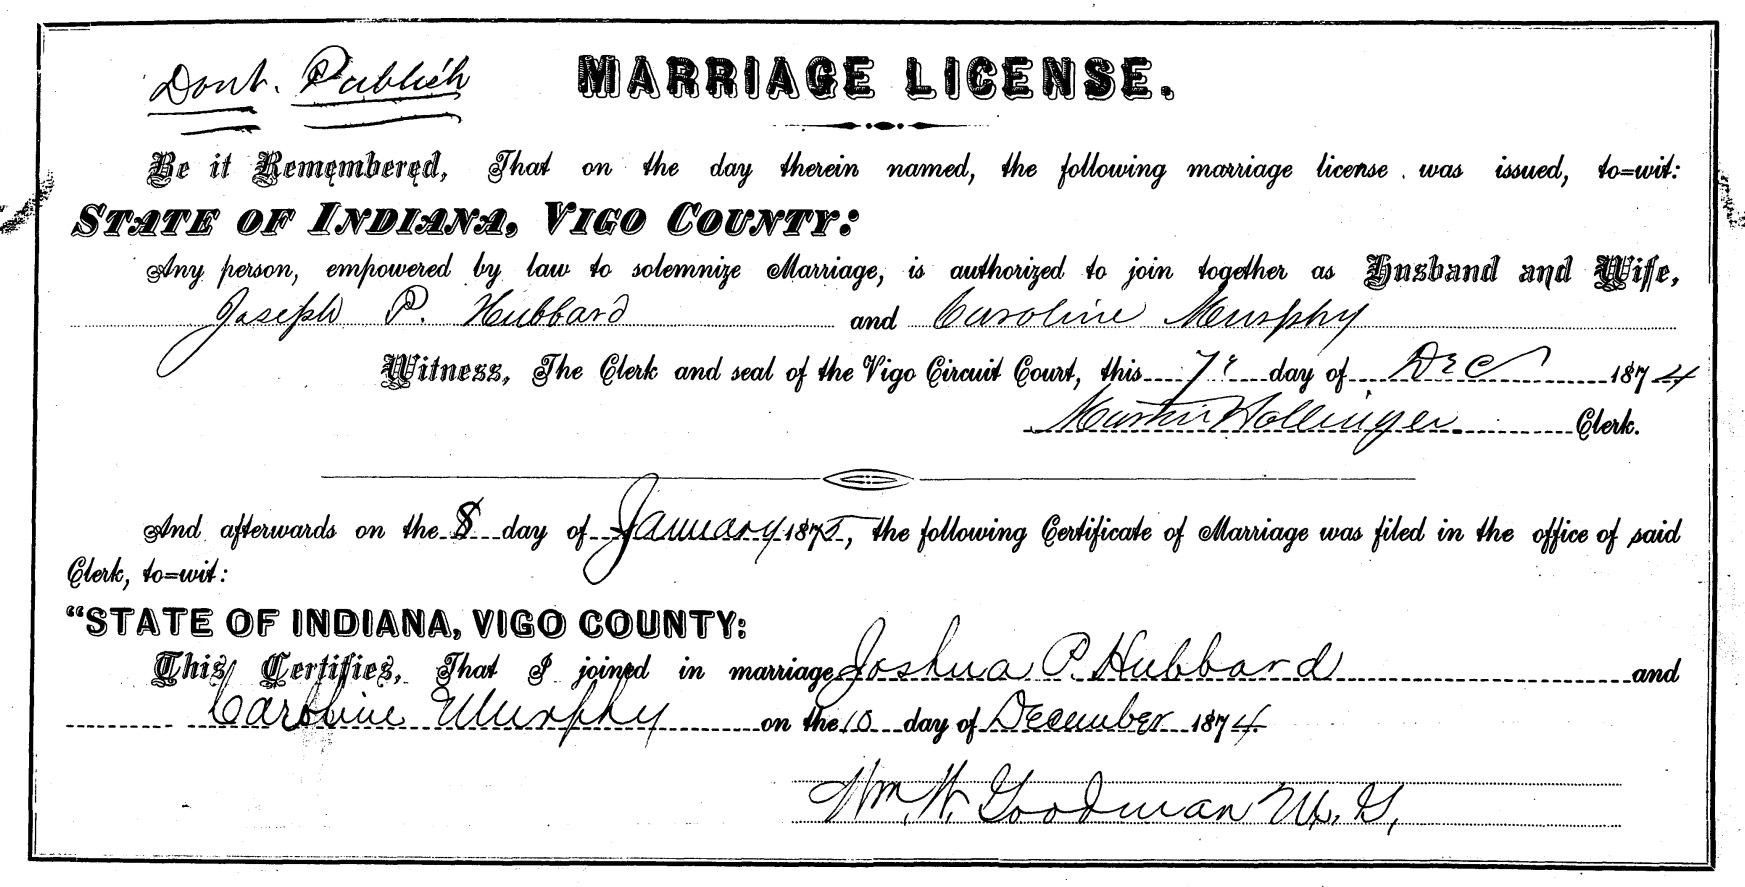 Dont. Publish
MARRIAGE LICENSE.
Be it Remembered, That on the day therein named, the following marriage license was issued, to=wit:
STATE OF INDIANA, VIGO COUNTY:
Any person, empowered by law to solemnize Marriage, is authorized to join together as Husband and Wife,
Joseph P. Hubbard and Caroline Murphy
Witness, The Clerk and seal of the Vigo Circuit Court, this 7th day of Dec 1874
Martin Hollinger Clerk.
And afterwards on the 8 day of January 1875, the following Certificate of Marriage was filed in the office of said
Clerk, to=wit:
"STATE OF INDIANA, VIGO COUNTY:
This Certifies, That I joined in marriage Joshua P. Hubbard and
Caroline Murphy on the 10 day of December 1874.
Wm. W. Goodman M. G.